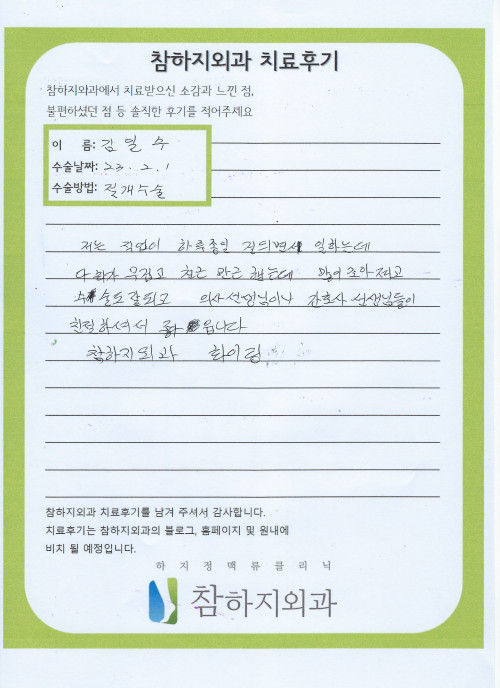 참하지외과 치료후기
참하지외과에서 치료받으신 소감과 느낀 점,
불편하셨던 점 등 솔직한 후기를 적어주세요
이 름: 김일수
수술날짜: 23. 2. 1
수술방법: 절개수술
저는 직업이 하루종일 걸으면서 일하는데
다리가 무겁고 했는데 많이 좋아지고
수술도 잘되고 의사선생님이나 간호사 선생님들이
친절하셔서 좋았습니다
참하지외과 화이팅
참하지외과 치료후기를 남겨 주셔서 감사합니다.
치료후기는 참하지외과의 블로그, 홈페이지 및 원내에
비치 될 예정입니다.
하지정맥류클리닉
참하지외과